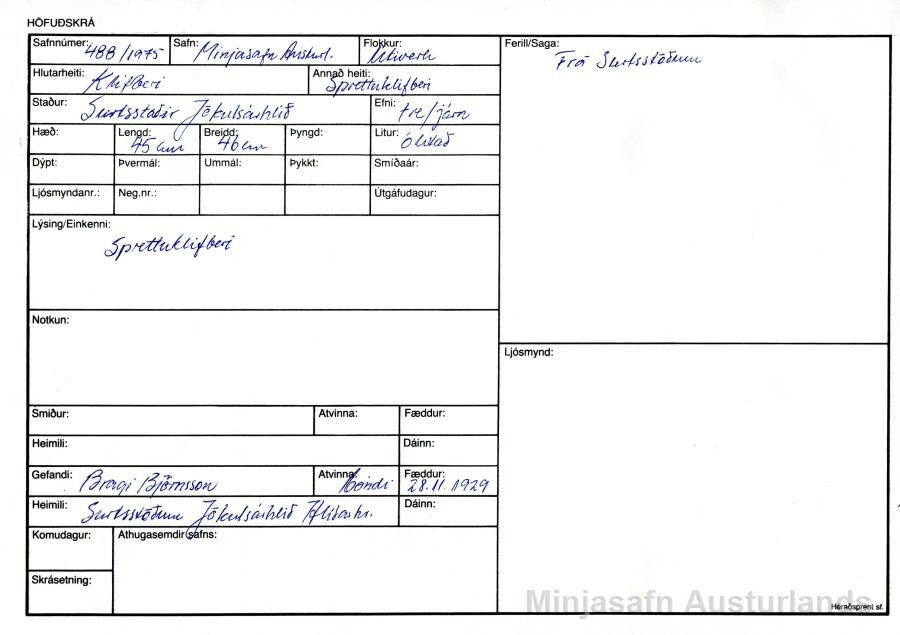 HÖFUÐSKRÁ
Safnnúmer: 488/1975 Safn: Minjasafn Austurl. Flokkur: Útiverk
Hlutarheiti: Klifberi Annað heiti: Sprettuklifberi
Staður: Surtsstaðir Jökulsárhlíð Efni: tré/járn
Hæð: Lengd: 45 cm Breidd: 46 cm Þyngd: Litur: Ólitað
Dýpt: Þvermál: Ummál: Þykkt: Smíðaár:
Ljósmyndanr.: Neg.nr.: Útgáfudagur:
Lýsing/Einkenni:
Sprettuklifberi
Notkun:
Smiður: Atvinna: Fæddur:
Heimili: Dáinn:
Gefandi: Bragi Björnsson Atvinna: bóndi Fæddur: 28.11.1929
Heimili: Surtsstöðum Jökulsárhlíð Dáinn:
Komudagur: Athugasemdir safns:
Skrásetning:
Ferill/Saga:
Frá Surtsstöðum
Ljósmynd:
Minjasafn Austurlands
Héraðsprent sf.